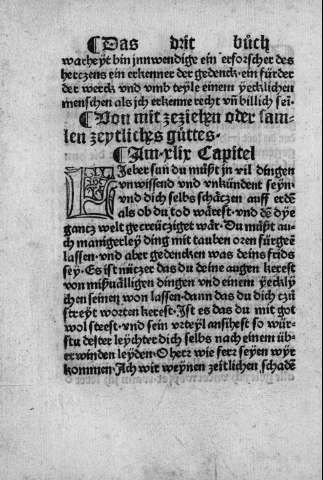 ¶Das drit bůch
warheyt bin jnnwendige ein erforscher des
hertzens ein erkenner der gedenck·ein fürder
der werck vnd vmb teyle einem yecklichen
menschen als jch erkenne recht vñ billich sei·
¶Von mit zeziehen oder sam-
len zeytlichs gůttes·
¶Am·xlix Capitel
LJeber sun du můst in vil dingen
vnwissend vnd vnkündent seyn·
vnd dich selbs schätzen auff erdẽ
als ob du tod wärest·vnd dẽ dye
gantz welt gecreücziget wär·Du můst au-
ch manigerley ding mit tauben oren fürgeẽ
lassen·vnd aber gedencken was deins frids
sey·Es ist nützer das du deine augen kerest
von mißuälligen dingen vnd einem yeckly
chen seinen won lassen·dann das du dich tzů
streyt worten kerest·Jst es das du mit got
wol steest·vnd sein vrteyl ansihest so wür-
stu dester leychter dich selbs nach einem üb-
erwinden leyden·O herr wie ferr seyen wyr
kommen·Ach wir weynen zeitlichen schadẽ